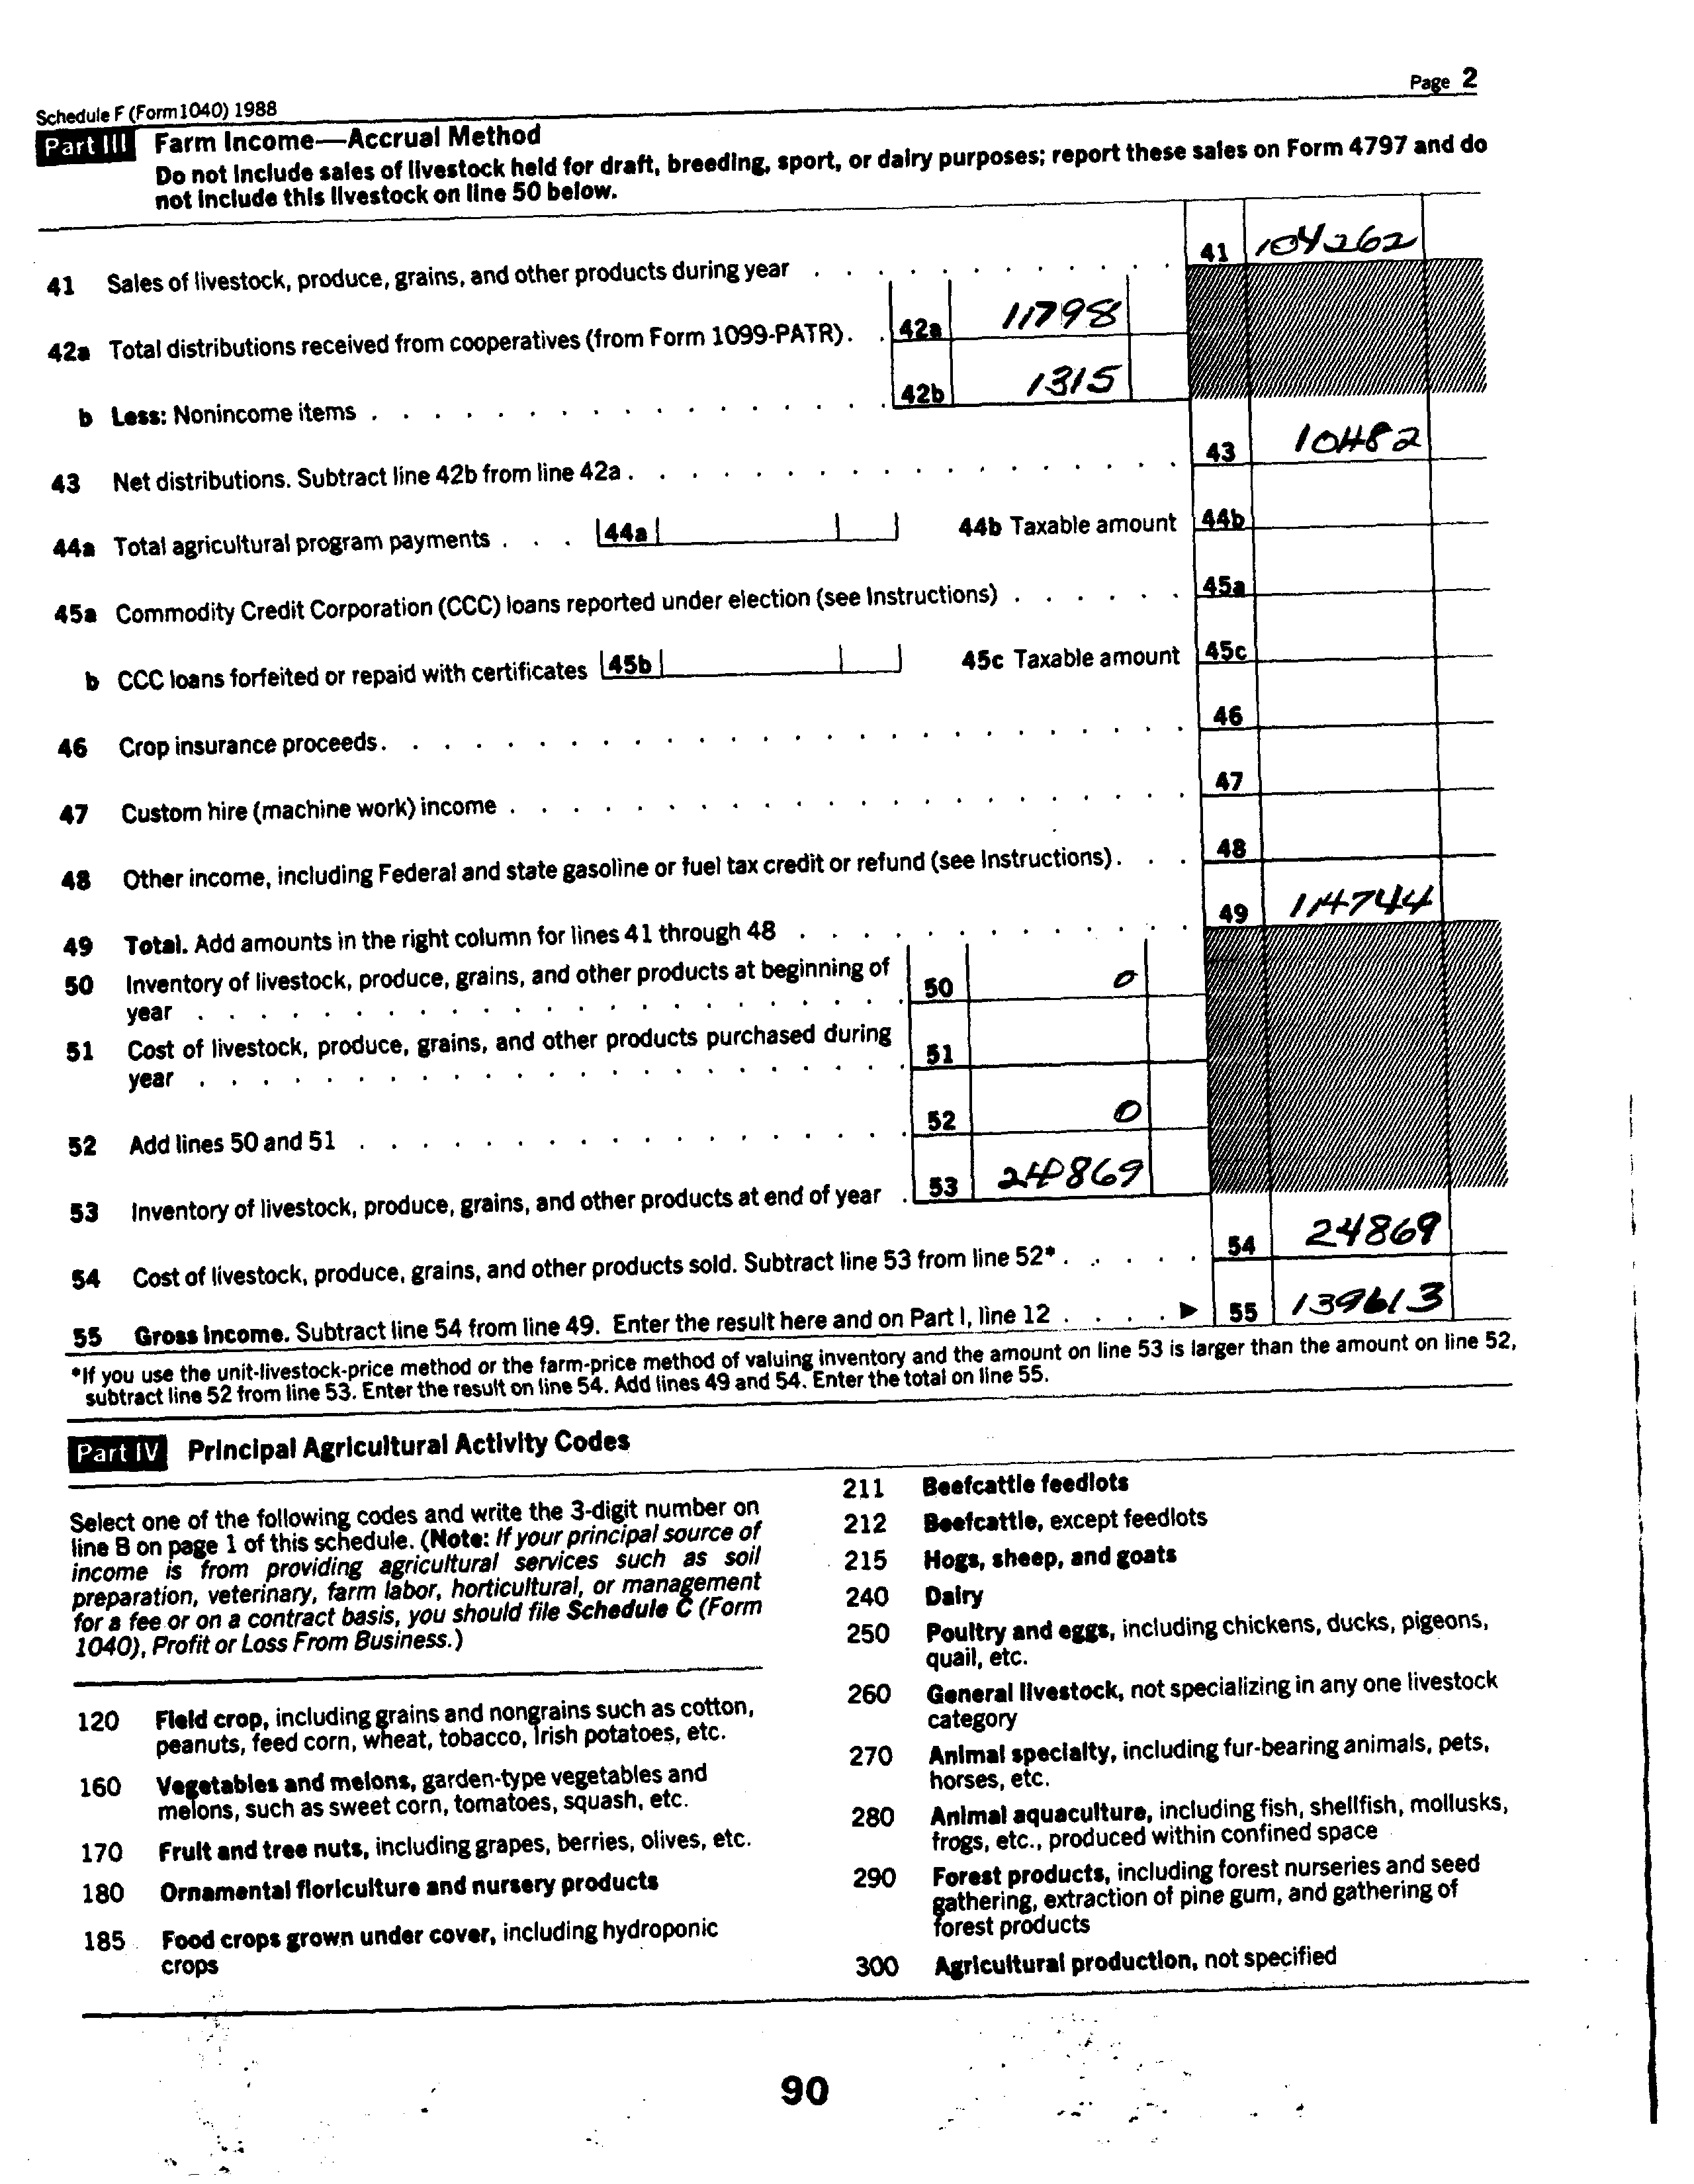 Schedule F (Form 1040) 1988 Page 2
Part III Farm Income—Accrual Method
Do not include sales of livestock held for draft, breeding, sport, or dairy purposes; report these sales on Form 4797 and do
not include this livestock on line 50 below.
41 Sales of livestock, produce, grains, and other products during year . . . . . . . . . . . . 41 104262
42a Total distributions received from cooperatives (from Form 1099-PATR) . . 42a 11798
b Less: Nonincome items . . . . . . . . . . . . . . . . . 42b 1315
43 Net distributions. Subtract line 42b from line 42a . . . . . . . . . . . . . . . . . . 43 10482
44a Total agricultural program payments . . . 44a 44b Taxable amount 44b
45a Commodity Credit Corporation (CCC) loans reported under election (see Instructions) . . . . . . 45a
b CCC loans forfeited or repaid with certificates 45b 45c Taxable amount 45c
46 Crop insurance proceeds . . . . . . . . . . . . . . . . . . . . . . . . . . 46
47 Custom hire (machine work) income . . . . . . . . . . . . . . . . . . . . . . 47
48 Other income, including Federal and state gasoline or fuel tax credit or refund (see Instructions) . . . 48
49 Total. Add amounts in the right column for lines 41 through 48 . . . . . . . . . . . . . 49 114744
50 Inventory of livestock, produce, grains, and other products at beginning of
year . . . . . . . . . . . . . . . . . . . . . . . 50 0
51 Cost of livestock, produce, grains, and other products purchased during
year . . . . . . . . . . . . . . . . . . . . . . . 51
52 Add lines 50 and 51 . . . . . . . . . . . . . . . . . . 52 0
53 Inventory of livestock, produce, grains, and other products at end of year . 53 24869
54 Cost of livestock, produce, grains, and other products sold. Subtract line 53 from line 52* . . . . . 54 24869
55 Gross income. Subtract line 54 from line 49. Enter the result here and on Part I, line 12 . . . . ▶ 55 139613
*If you use the unit-livestock-price method or the farm-price method of valuing inventory and the amount on line 53 is larger than the amount on line 52,
subtract line 52 from line 53. Enter the result on line 54. Add lines 49 and 54. Enter the total on line 55.
Part IV Principal Agricultural Activity Codes
Select one of the following codes and write the 3-digit number on
line B on page 1 of this schedule. (Note: If your principal source of
income is from providing agricultural services such as soil
preparation, veterinary, farm labor, horticultural, or management
for a fee or on a contract basis, you should file Schedule C (Form
1040), Profit or Loss From Business.)
120 Field crop, including grains and nongrains such as cotton,
peanuts, feed corn, wheat, tobacco, Irish potatoes, etc.
160 Vegetables and melons, garden-type vegetables and
melons, such as sweet corn, tomatoes, squash, etc.
170 Fruit and tree nuts, including grapes, berries, olives, etc.
180 Ornamental floriculture and nursery products
185 Food crops grown under cover, including hydroponic
crops
211 Beefcattle feedlots
212 Beefcattle, except feedlots
215 Hogs, sheep, and goats
240 Dairy
250 Poultry and eggs, including chickens, ducks, pigeons,
quail, etc.
260 General livestock, not specializing in any one livestock
category
270 Animal specialty, including fur-bearing animals, pets,
horses, etc.
280 Animal aquaculture, including fish, shellfish, mollusks,
frogs, etc., produced within confined space
290 Forest products, including forest nurseries and seed
gathering, extraction of pine gum, and gathering of
forest products
300 Agricultural production, not specified
90